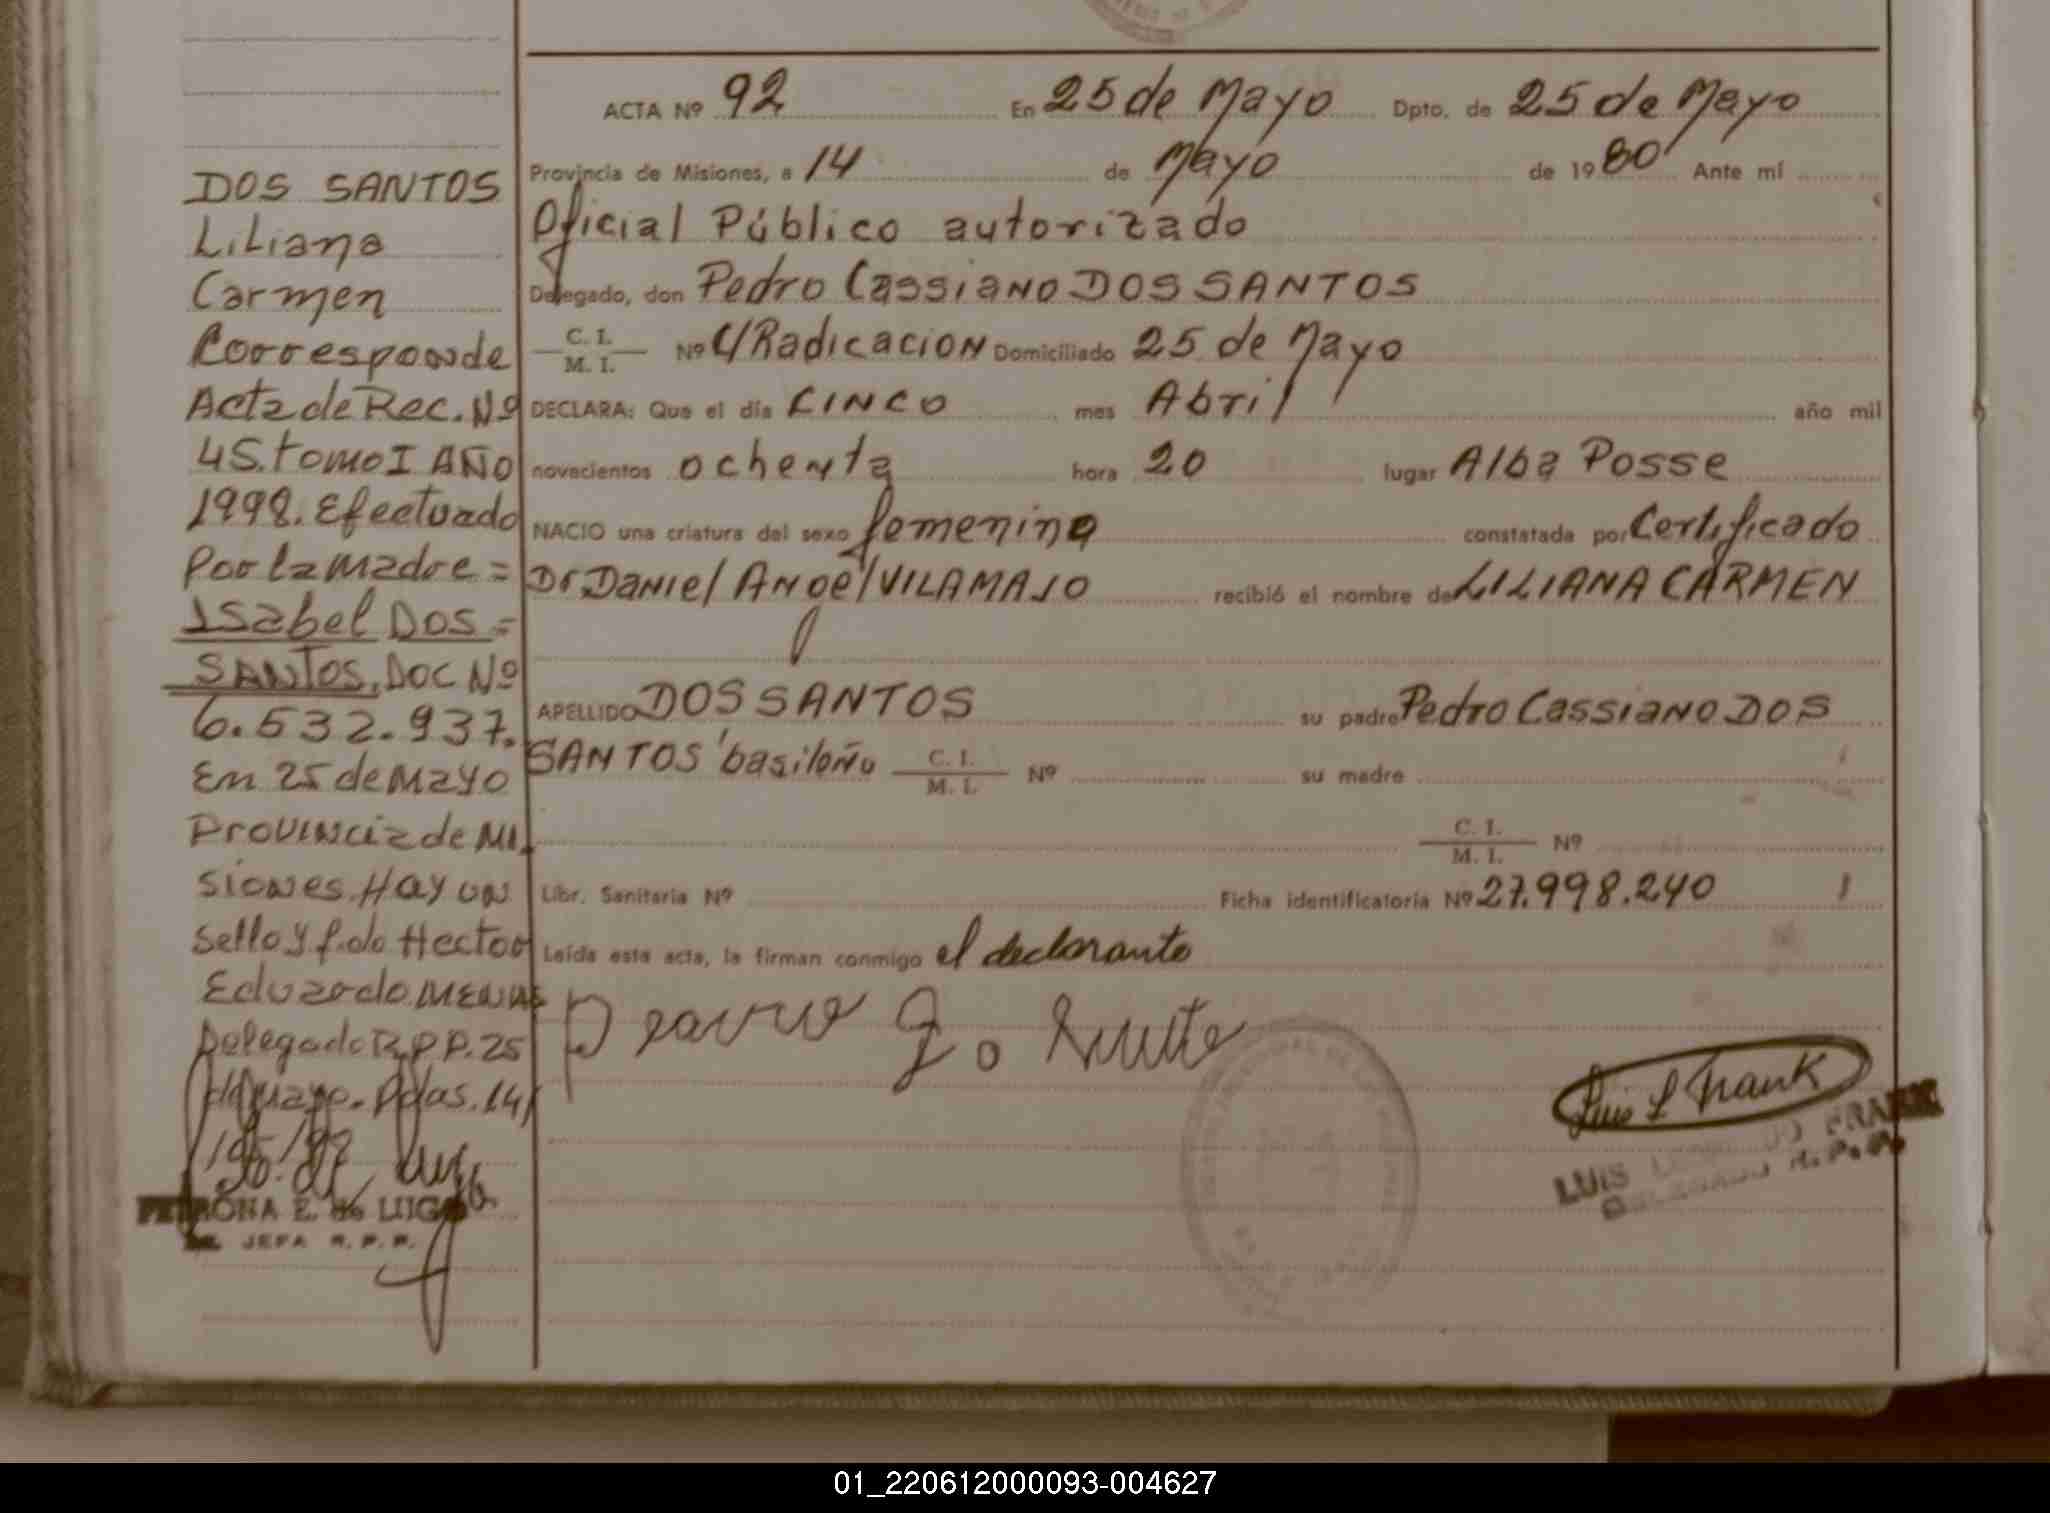 ACTA Nº 92 En 25 de Mayo Dpto. de 25 de Mayo
Provincia de Misiones, a 14 de Mayo de 1980 Ante mí
Oficial Público autorizado
Delegado, don Pedro Cassiano DOS SANTOS
C. I.
M. I. Nº C/Radicacion Domiciliado 25 de Mayo
DECLARA: Que el día CINCO mes Abril año mil
novecientos ochenta hora 20 lugar Alba Posse
NACIO una criatura del sexo femenino constatada por Certificado
Dr Daniel Angel VILAMAJO recibió el nombre de LILIANA CARMEN
APELLIDO DOS SANTOS su padre Pedro Cassiano DOS
SANTOS basileño C. I.
M. I. Nº su madre
C. I.
M. I. Nº
Libr. Sanitaria Nº Ficha identificatoria Nº 27.998.240
Leída esta acta, la firman conmigo el declarante
Luis L Frank
LUIS FRANK
DELEGADO R. P. P.
DOS SANTOS
Liliana
Carmen
Corresponde
Acta de Rec. Nº
45. tomo I AÑO
1998. Efectuado
Por la madre =
Isabel DOS =
SANTOS, DOC Nº
6.532.937.
En 25 de Mayo
Provincia de Mi
siones. Hay un
sello y f.do Hector
Eduardo
Delegado R.P.P. 25
de Mayo. Pdas. 14/
PETRONA E. de LUGO
JEFA R. P. P.
01_220612000093-004627